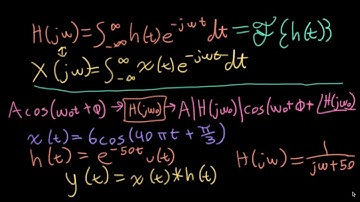 H(jω)=∫_{-∞}^{∞} h(t)e^{-jωt}dt = ℱ{h(t)}
↕
X(jω)=∫_{-∞}^{∞} x(t)e^{-jωt}dt
Acos(ω₀t+φ)→[H(jω₀)]→A|H(jω₀)|cos(ω₀t+φ+∠H(jω₀)
x(t)=6cos(40πt+π/3)
h(t)=e^{-50t}u(t) H(jω)=1/(jω+50)
y(t)=x(t)*h(t)